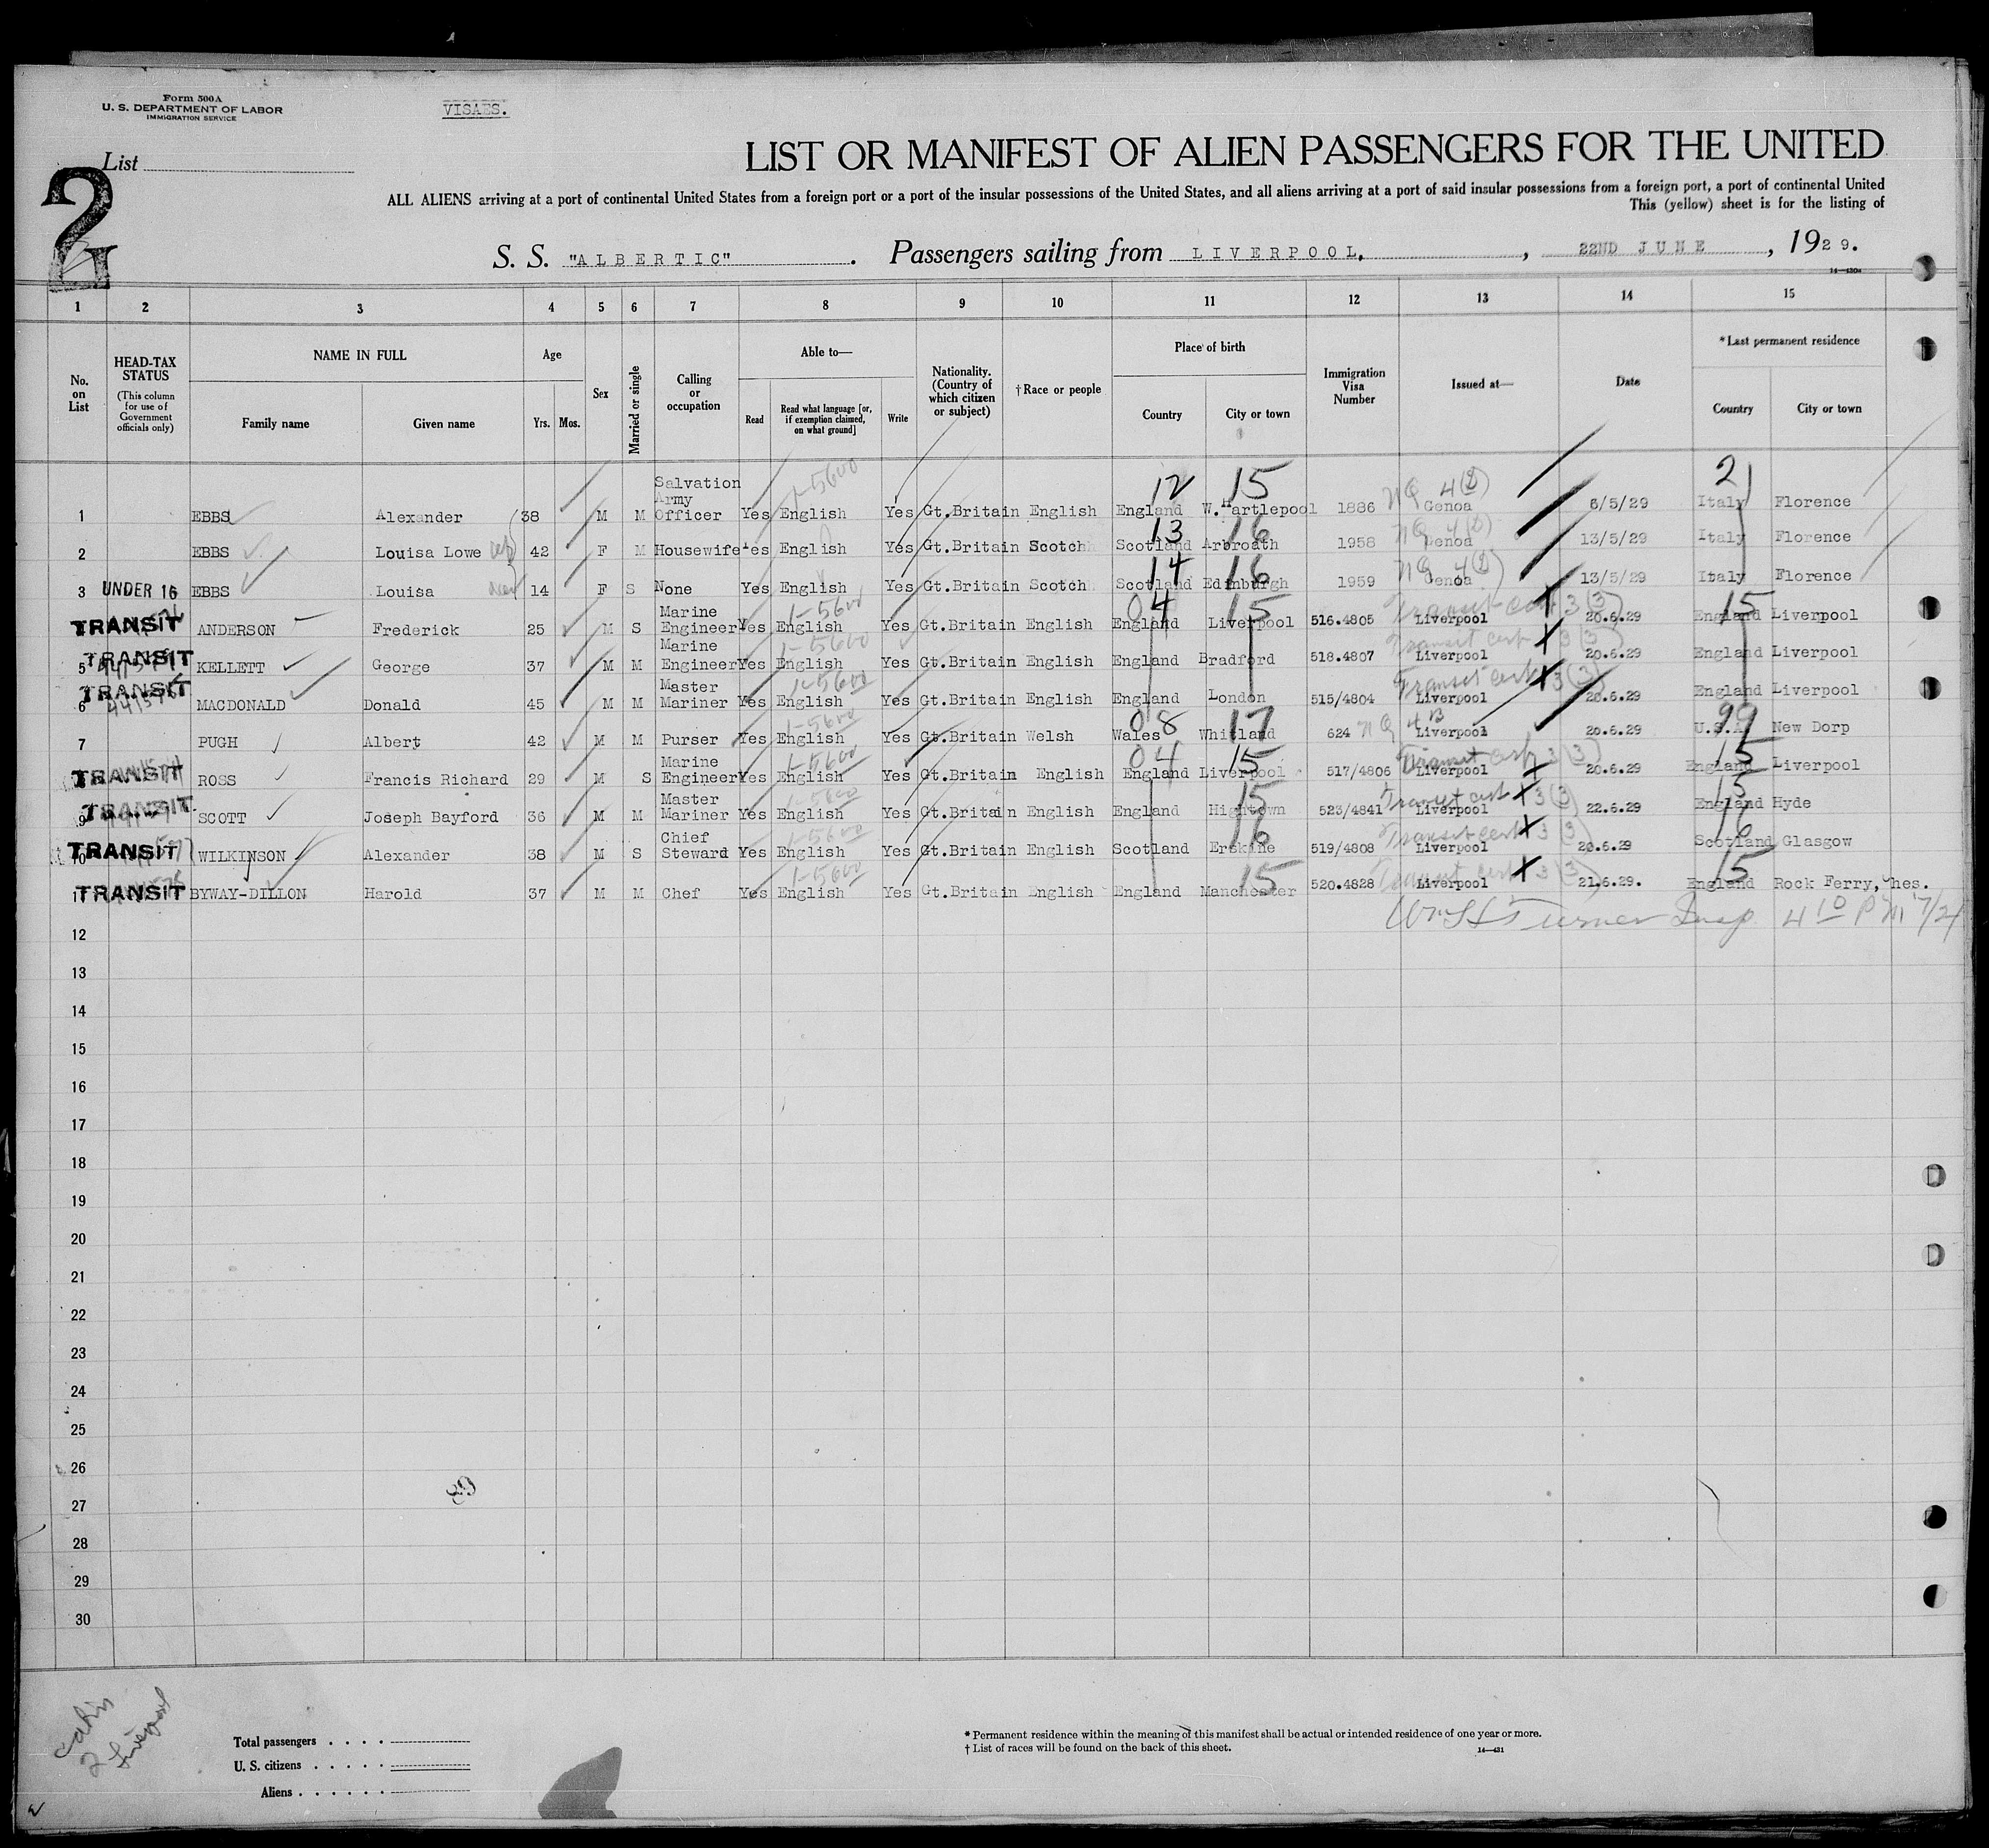 Form 500A
U. S. DEPARTMENT OF LABOR
IMMIGRATION SERVICE
VISAES.
List
2
LIST OR MANIFEST OF ALIEN PASSENGERS FOR THE UNITED
ALL ALIENS arriving at a port of continental United States from a foreign port or a port of the insular possessions of the United States, and all aliens arriving at a port of said insular possessions from a foreign port, a port of continental United
This (yellow) sheet is for the listing of
S. S. "ALBERTIC". Passengers sailing from LIVERPOOL, , 22ND JUNE , 1929.
14—430a
1 2 3 4 5 6 7 8 9 10 11 12 13 14 15
No. on List
HEAD-TAX STATUS
(This column for use of Government officials only)
NAME IN FULL
Family name Given name
Age
Yrs. Mos.
Sex
Married or single
Calling or occupation
Able to—
Read
Read what language [or, if exemption claimed, on what ground]
Write
Nationality. (Country of which citizen or subject)
† Race or people
Place of birth
Country City or town
Immigration Visa Number
Issued at—
Date
* Last permanent residence
Country City or town
1 EBBS Alexander 38 M M Salvation Army Officer Yes English 1-5600 Yes Gt.Britain English England 12 W.Hartlepool 15 1886 NQ 4(D) Genoa 6/5/29 Italy 21 Florence
2 EBBS Louisa Lowe 42 F M Housewife Yes English Yes Gt.Britain Scotch Scotland 13 Arbroath 16 1958 NQ 4(D) Genoa 13/5/29 Italy Florence
3 UNDER 16 EBBS Louisa 14 F S None Yes English Yes Gt.Britain Scotch Scotland 14 Edinburgh 16 1959 NQ 4(D) Genoa 13/5/29 Italy Florence
TRANSIT ANDERSON Frederick 25 M S Marine Engineer Yes English 1-5600 Yes Gt.Britain English England 04 Liverpool 15 516.4805 Transit cert 3(3) Liverpool 20.6.29 England 15 Liverpool
5 TRANSIT KELLETT George 37 M M Marine Engineer Yes English 1-5600 Yes Gt.Britain English England Bradford 518.4807 Transit cert 3(3) Liverpool 20.6.29 England Liverpool
6 TRANSIT MACDONALD Donald 45 M M Master Mariner Yes English 1-5600 Yes Gt.Britain English England London 515/4804 Transit cert 3(3) Liverpool 20.6.29 England Liverpool
7 PUGH Albert 42 M M Purser Yes English 1-5600 Yes Gt.Britain Welsh Wales 08 Whitland 17 624 NQ 4B Liverpool 20.6.29 U.S.A. 99 New Dorp
TRANSIT ROSS Francis Richard 29 M S Marine Engineer Yes English 1-5600 Yes Gt.Britain English England 04 Liverpool 15 517/4806 Transit cert 3(3) Liverpool 20.6.29 England 15 Liverpool
9 TRANSIT SCOTT Joseph Bayford 36 M M Master Mariner Yes English 1-5600 Yes Gt.Britain English England Hightown 15 523/4841 Transit cert 3(3) Liverpool 22.6.29 England 15 Hyde
10 TRANSIT WILKINSON Alexander 38 M S Chief Steward Yes English 1-5600 Yes Gt.Britain English Scotland Erskine 16 519/4808 Transit cert 3(3) Liverpool 20.6.29 Scotland 16 Glasgow
11 TRANSIT BYWAY-DILLON Harold 37 M M Chef Yes English 1-5600 Yes Gt.Britain English England Manchester 15 520.4828 Transit cert 3(3) Liverpool 21.6.29. England 15 Rock Ferry, hes.
Wm H Turner Insp. 4 10 PM 7/2
12
13
14
15
16
17
18
19
20
21
22
23
24
25
26
27
28
29
30
Cabin
2 Liverpool
Total passengers
U. S. citizens
Aliens
* Permanent residence within the meaning of this manifest shall be actual or intended residence of one year or more.
† List of races will be found on the back of this sheet.
14—431